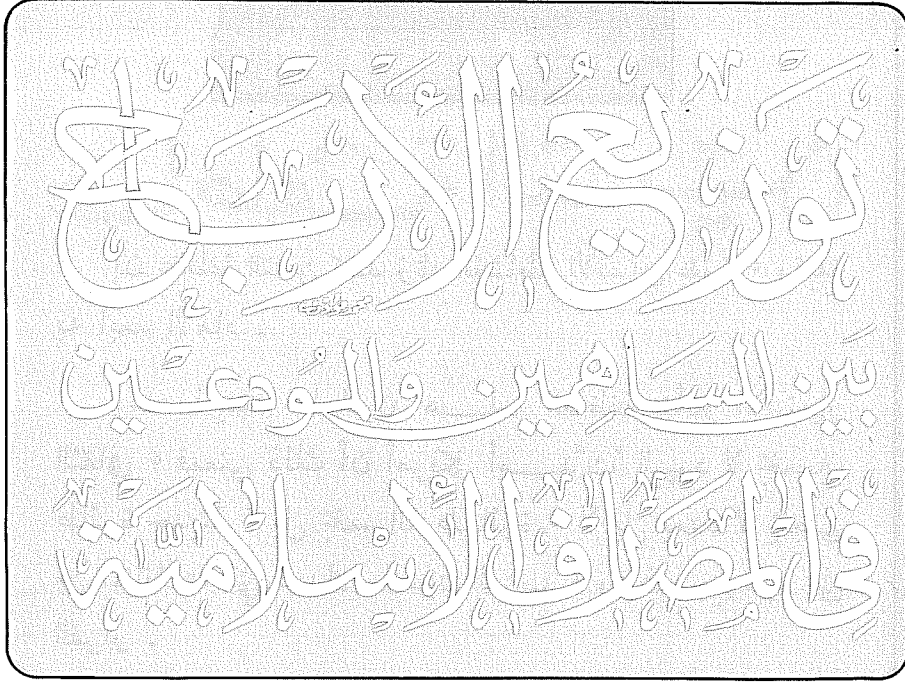 توزيع الأرباح
بَين المسَاهِمين وَالمُودعَين
في المصَارف الإسْلاميَّة